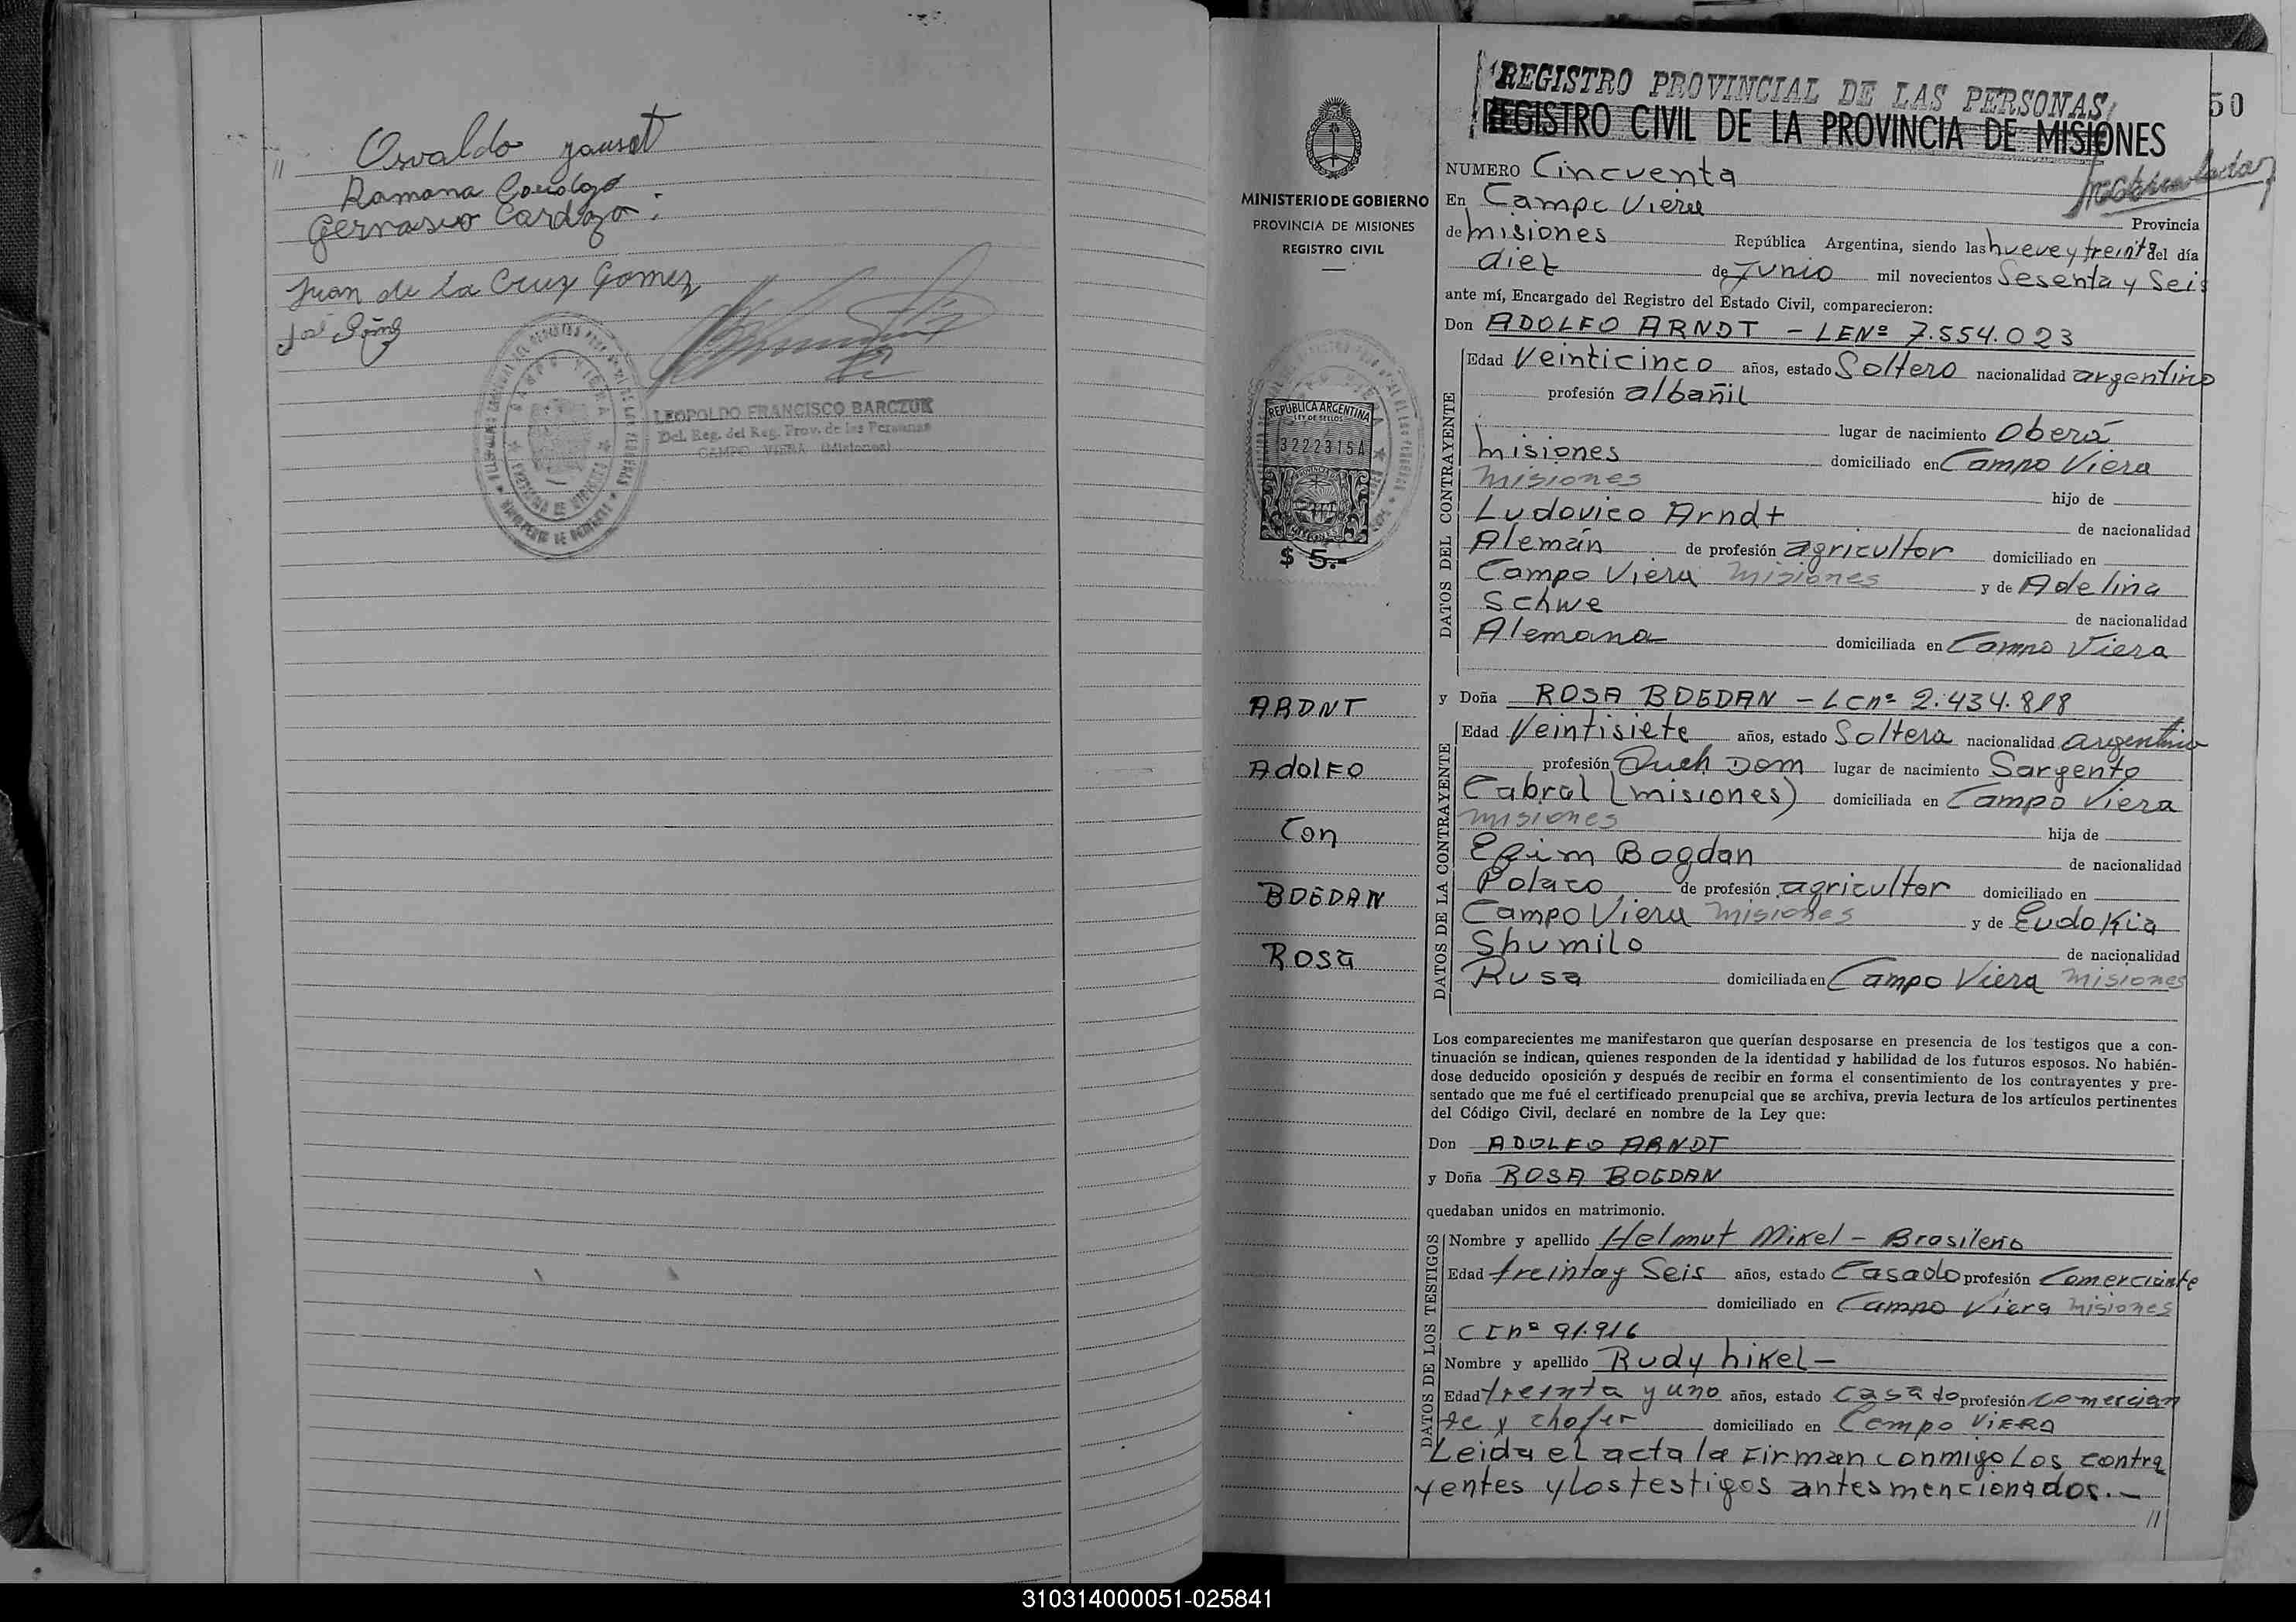 //
Osvaldo
Ramona
Gernasio Cardozo
Juan de la Cruz Gomez
José
LEOPOLDO FRANCISCO BARCZUK
Del. Reg. del Reg. Prov. de las Personas
CAMPO VIERA (Misiones)
50
REGISTRO PROVINCIAL DE LAS PERSONAS
REGISTRO CIVIL DE LA PROVINCIA DE MISIONES
MINISTERIO DE GOBIERNO
PROVINCIA DE MISIONES
REGISTRO CIVIL
REPUBLICA ARGENTINA
LEY DE SELLOS
3222315A
$ 5.-
ARDNT
AdolFO
Con
BOGDAN
Rosa
NUMERO Cincuenta
En Campo Viera Provincia
de misiones República Argentina, siendo las nueve y treinta del día
diez de Junio mil novecientos Sesenta y Seis
ante mí, Encargado del Registro del Estado Civil, comparecieron:
Don ADOLFO ARNDT - LENº 7.554.023
DATOS DEL CONTRAYENTE
Edad Veinticinco años, estado Soltero nacionalidad argentino
profesión albañil
lugar de nacimiento Oberá
misiones domiciliado en Campo Viera
misiones hijo de
Ludovico Arndt de nacionalidad
Alemán de profesión agricultor domiciliado en
Campo Viera misiones y de Adelina
Schwe de nacionalidad
Alemana domiciliada en Campo Viera
y Doña ROSA BOGDAN - LCnº 2.434.818
DATOS DE LA CONTRAYENTE
Edad Veintisiete años, estado Soltera nacionalidad argentino
profesión Queh Dom lugar de nacimiento Sargento
Cabral (misiones) domiciliada en Campo Viera
misiones hija de
Efim Bogdan de nacionalidad
Polaco de profesión agricultor domiciliado en
Campo Viera misiones y de Eudokia
Shumilo de nacionalidad
Rusa domiciliada en Campo Viera misiones
Los comparecientes me manifestaron que querían desposarse en presencia de los testigos que a con-
tinuación se indican, quienes responden de la identidad y habilidad de los futuros esposos. No habién-
dose deducido oposición y después de recibir en forma el consentimiento de los contrayentes y pre-
sentado que me fué el certificado prenupcial que se archiva, previa lectura de los artículos pertinentes
del Código Civil, declaré en nombre de la Ley que:
Don ADOLFO ARNDT
y Doña ROSA BOGDAN
quedaban unidos en matrimonio.
DATOS DE LOS TESTIGOS
Nombre y apellido Helmut Mikel - Brasileño
Edad treinta y Seis años, estado Casado profesión Comerciante
domiciliado en Campo Viera misiones
CInº 91.916
Nombre y apellido Rudy hikel -
Edad treinta y uno años, estado casado profesión comercian
te y chofer domiciliado en Campo VIERA
Leida el acta la Firman conmigo Los contra
yentes y los testigos antes mencionados.-
//
310314000051-025841